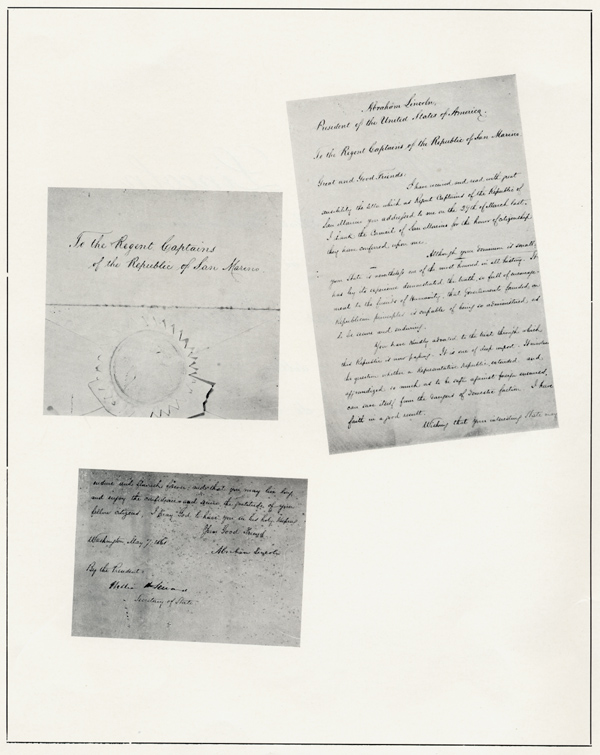 To the Regent Captains
of the Republic of San Marino
Abraham Lincoln,
President of the United States of America,
To the Regent Captains of the Republic of San Marino
Great and Good Friends:
I have received and read with great
sensibility the letter which as Regent Captains of the Republic of
San Marino you addressed to me on the 29th of March last.
I thank the Council of San Marino for the honor of citizenship
they have conferred upon me.
Although your dominion is small,
your State is nevertheless one of the most honored in all history. It
has by its experience demonstrated the truth, so full of encourage-
ment to the friends of Humanity, that Government founded on
Republican principles is capable of being so administered, as
to be secure and enduring.
You have kindly adverted to the trial through which
this Republic is now passing. It is one of deep import. It involves
the question whether a Representative republic, extended and
aggrandized so much as to be safe against foreign enemies,
can save itself from the dangers of domestic faction. I have
faith in a good result.
Wishing that your interesting State may
endure until and that you may live long
and enjoy the confidence and secure the gratitude of your
fellow citizens, I pray God to have you in his holy keeping
Your Good Friend
Washington, May 7, 1861
Abraham Lincoln
By the President:
William H. Seward
Secretary of State